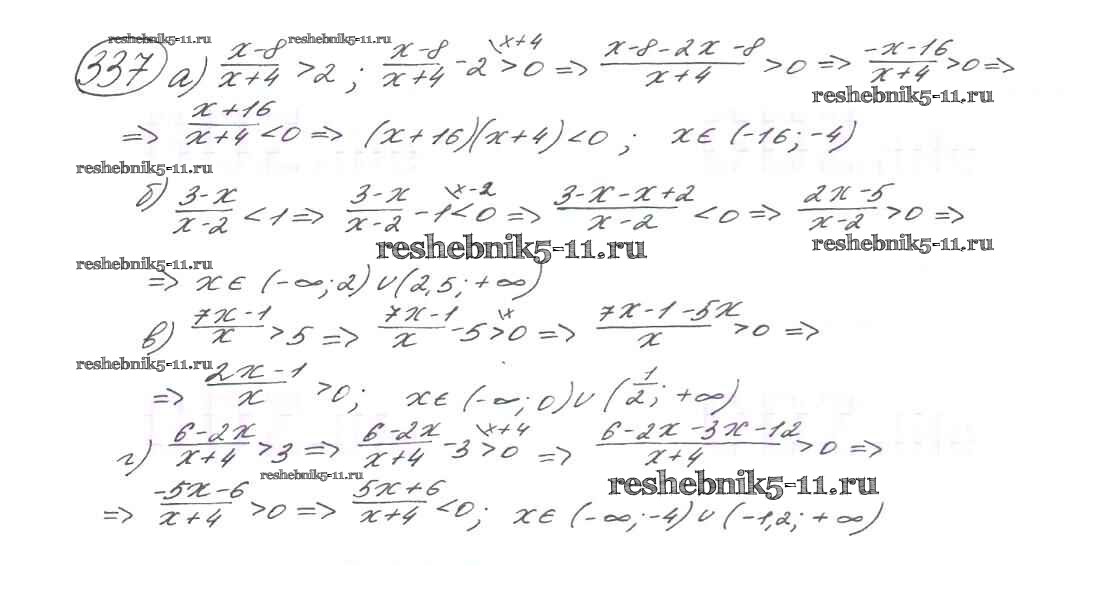 reshebnik5-11.ru reshebnik5-11.ru
337 а) (x-8)/(x+4) > 2 ; (x-8)/(x+4) - 2 \x+4 > 0 => (x-8-2x-8)/(x+4) > 0 => (-x-16)/(x+4) > 0 =>
reshebnik5-11.ru
=> (x+16)/(x+4) < 0 => (x+16)(x+4) < 0 ; x ∈ (-16; -4)
reshebnik5-11.ru
б) (3-x)/(x-2) < 1 => (3-x)/(x-2) - 1 \x-2 < 0 => (3-x-x+2)/(x-2) < 0 => (2x-5)/(x-2) > 0 =>
reshebnik5-11.ru reshebnik5-11.ru
reshebnik5-11.ru
=> x ∈ (-∞; 2) ∪ (2,5; +∞)
в) (7x-1)/x > 5 => (7x-1)/x - 5 \x > 0 => (7x-1-5x)/x > 0 =>
reshebnik5-11.ru
=> (2x-1)/x > 0 ; x ∈ (-∞; 0) ∪ (1/2; +∞)
г) (6-2x)/(x+4) > 3 => (6-2x)/(x+4) - 3 \x+4 > 0 => (6-2x-3x-12)/(x+4) > 0 =>
reshebnik5-11.ru reshebnik5-11.ru
=> (-5x-6)/(x+4) > 0 => (5x+6)/(x+4) < 0 ; x ∈ (-∞; -4) ∪ (-1,2; +∞)